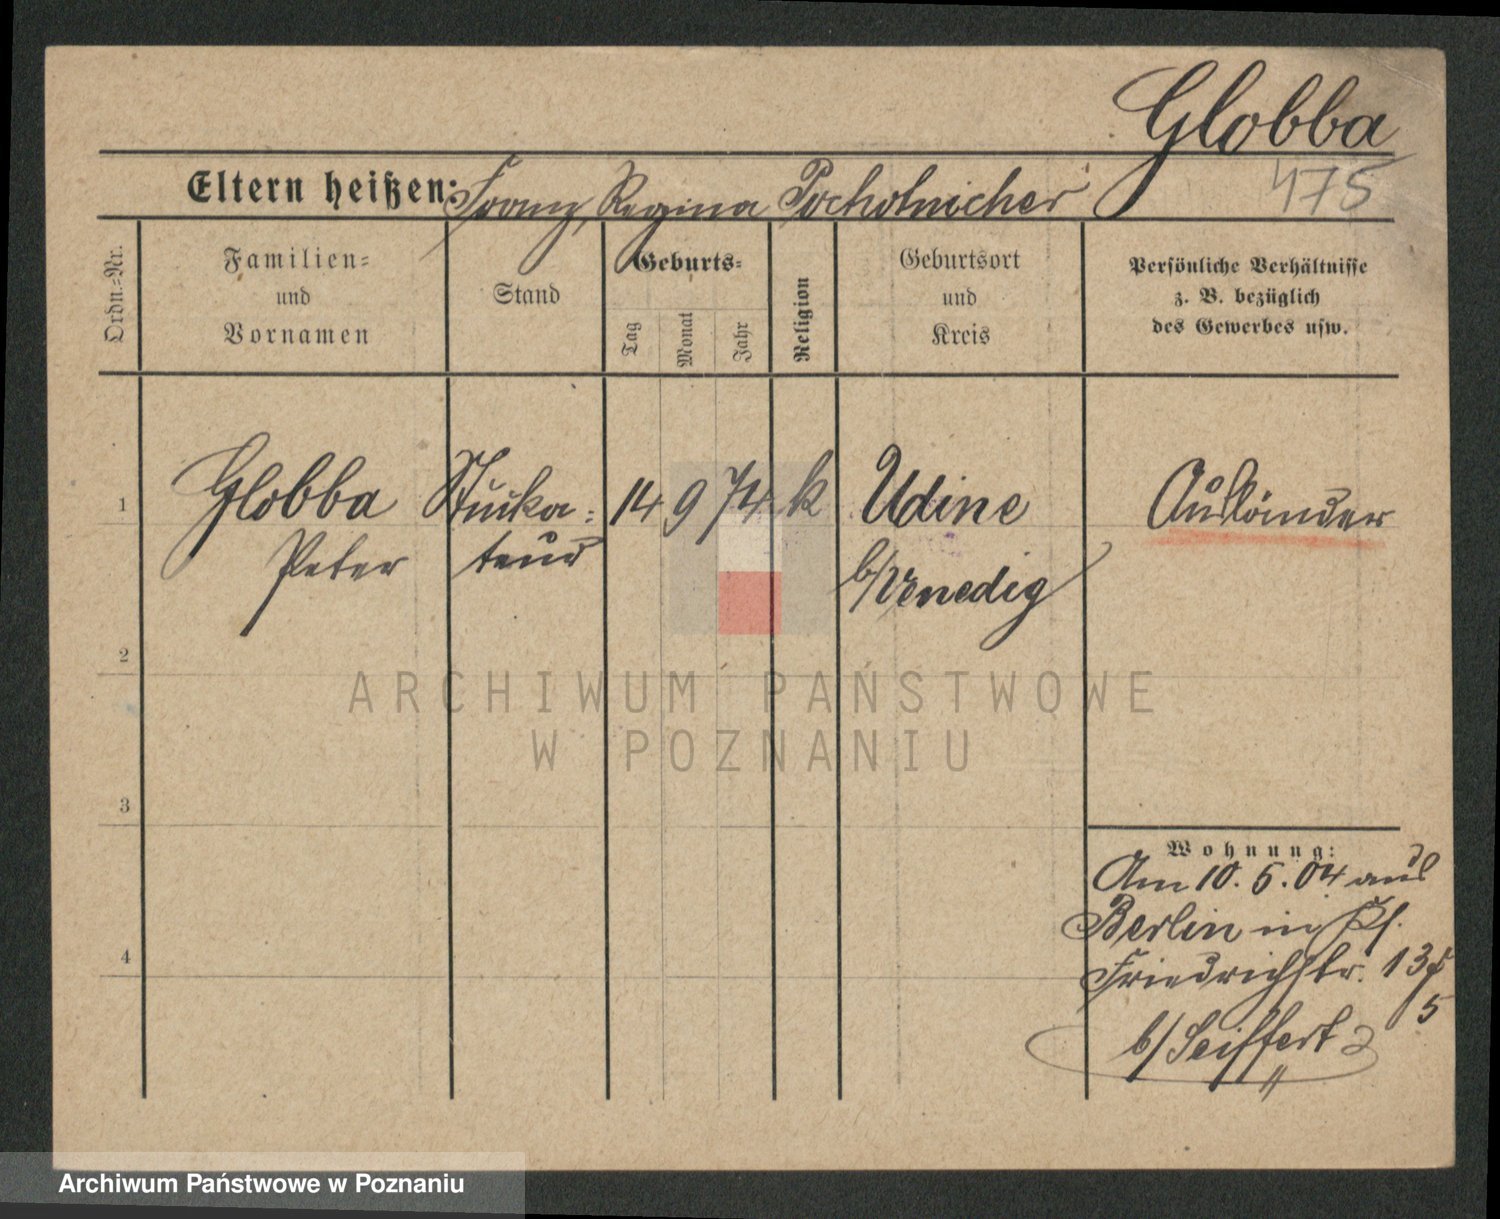 Globba
475
Eltern heißen: Franz, Regina Pochotnicher
Ordn.-Nr.
Familien-
und
Vornamen
Stand
Geburts-
Tag
Monat
Jahr
Religion
Geburtsort
und
Kreis
Persönliche Verhältnisse
z. B. bezüglich
des Gewerbes usw.
1
Globba
Peter
Stucka-
teur
14 9 74 k
Udine
b/Venedig
Ausländer
2
3
4
ARCHIWUM PAŃSTWOWE
W POZNANIU
Wohnung:
Am 10. 5. 04 aus
Berlin in
Friedrichstr. 13
5
b/Seiffert
Archiwum Państwowe w Poznaniu